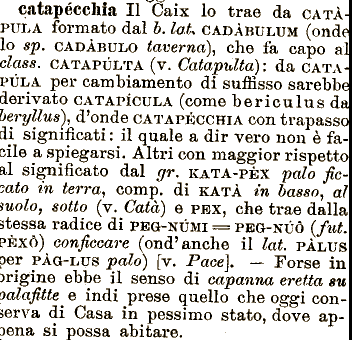 catapécchia Il Caix lo trae da CATÀ-
PULA formato dal b. lat. CADÀBULUM (onde
lo sp. CADÀBULO taverna), che fa capo al
class. CATAPÚLTA (v. Catapulta): da CATA-
PÚLA per cambiamento di suffisso sarebbe
derivato CATAPÍCULA (come bericulus da
beryllus), d'onde CATAPÉCCHIA con trapasso
di significati: il quale a dir vero non è fa-
cile a spiegarsi. Altri con maggior rispetto
al significato dal gr. KATA-PÈX palo fic-
cato in terra, comp. di KATÀ in basso, al
suolo, sotto (v. Catà) e PEX, che trae dalla
stessa radice di PEG-NÚMI = PEG-NÚÔ (fut.
PÈXÔ) conficcare (ond'anche il lat. PÀLUS
per PÀG-LUS palo) [v. Pace]. — Forse in
origine ebbe il senso di capanna eretta su
palafitte e indi prese quello che oggi con-
serva di Casa in pessimo stato, dove ap-
pena si possa abitare.